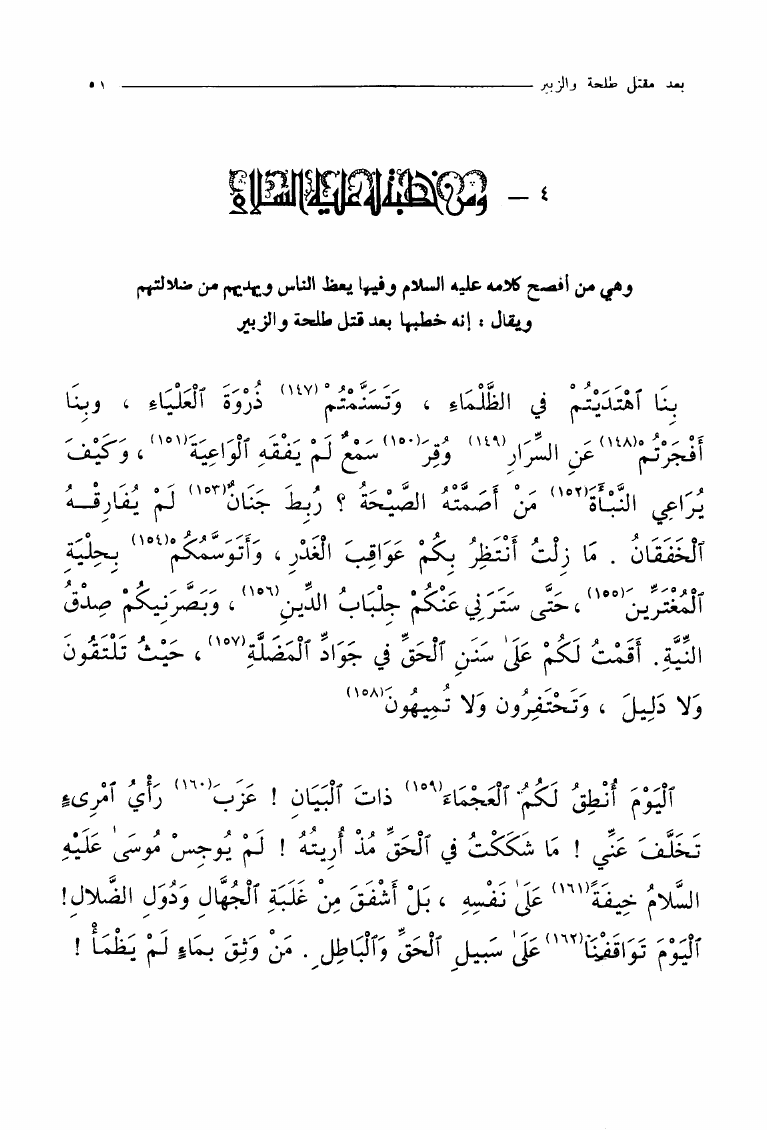 بعد مقتل طلحة والزبير ٥١
٤ – ومن خطبة له عليه السلام
وهي من أفصح كلامه عليه السلام وفيها يعظ الناس ويهديهم من ضلالتهم
ويقال : إنه خطبها بعد قتل طلحة والزبير
بِنَا ٱهْتَدَيْتُمْ في الظَّلْمَاءِ ، وَتَسَنَّمْتُمْ(١٤٧) ذُرْوَةَ ٱلْعَلْيَاءِ ، وبِنَا
أَفْجَرْتُمْ(١٤٨) عَنِ السِّرَارِ(١٤٩) وُقِرَ(١٥٠) سَمْعٌ لَمْ يَفْقَهِ ٱلْوَاعِيَةَ(١٥١) ، وَكَيْفَ
يُرَاعِي النَّبْأَةَ(١٥٢) مَنْ أَصَمَّتْهُ الصَّيْحَةُ ؟ رُبِطَ جَنَانٌ(١٥٣) لَمْ يُفَارِقْـهُ
ٱلْخَفَقَانُ . مَا زِلْتُ أَنْتَظِرُ بِكُمْ عَوَاقِبَ ٱلْغَدْرِ ، وَأَتَوَسَّمُكُمْ(١٥٤) بِحِلْيَةِ
ٱلْمُغْتَرِّينَ(١٥٥) ، حَتَّى سَتَرَنِي عَنْكُمْ جِلْبَابُ الدِّينِ(١٥٦) ، وَبَصَّرَنِيكُمْ صِدْقُ
النِّيَّةِ . أَقَمْتُ لَكُمْ عَلَىٰ سَنَنِ ٱلْحَقِّ في جَوَادِّ ٱلْمَضَلَّةِ(١٥٧) ، حَيْثُ تَلْتَقُونَ
وَلا دَلِيلَ ، وَتَحْتَفِرُونَ وَلا تُمِيهُونَ(١٥٨)
ٱلْيَوْمَ أُنْطِقُ لَكُمُ ٱلْعَجْمَاءَ(١٥٩) ذاتَ ٱلْبَيَانِ ! عَزَبَ(١٦٠) رَأْيُ ٱمْرِىءٍ
تَخَلَّفَ عَنِّي ! مَا شَكَكْتُ في ٱلْحَقِّ مُذْ أُرِيتُهُ ! لَمْ يُوجِسْ مُوسَىٰ عَلَيْهِ
السَّلامُ خِيفَةً(١٦١) عَلَىٰ نَفْسِهِ ، بَلْ أَشْفَقَ مِنْ غَلَبَةِ ٱلْجُهَّالِ وَدُوَلِ الضَّلالِ !
ٱلْيَوْمَ تَوَاقَفْنَا(١٦٢) عَلَىٰ سَبِيلِ ٱلْحَقِّ وَٱلْبَاطِلِ . مَنْ وَثِقَ بِمَاءٍ لَمْ يَظْمَأْ !